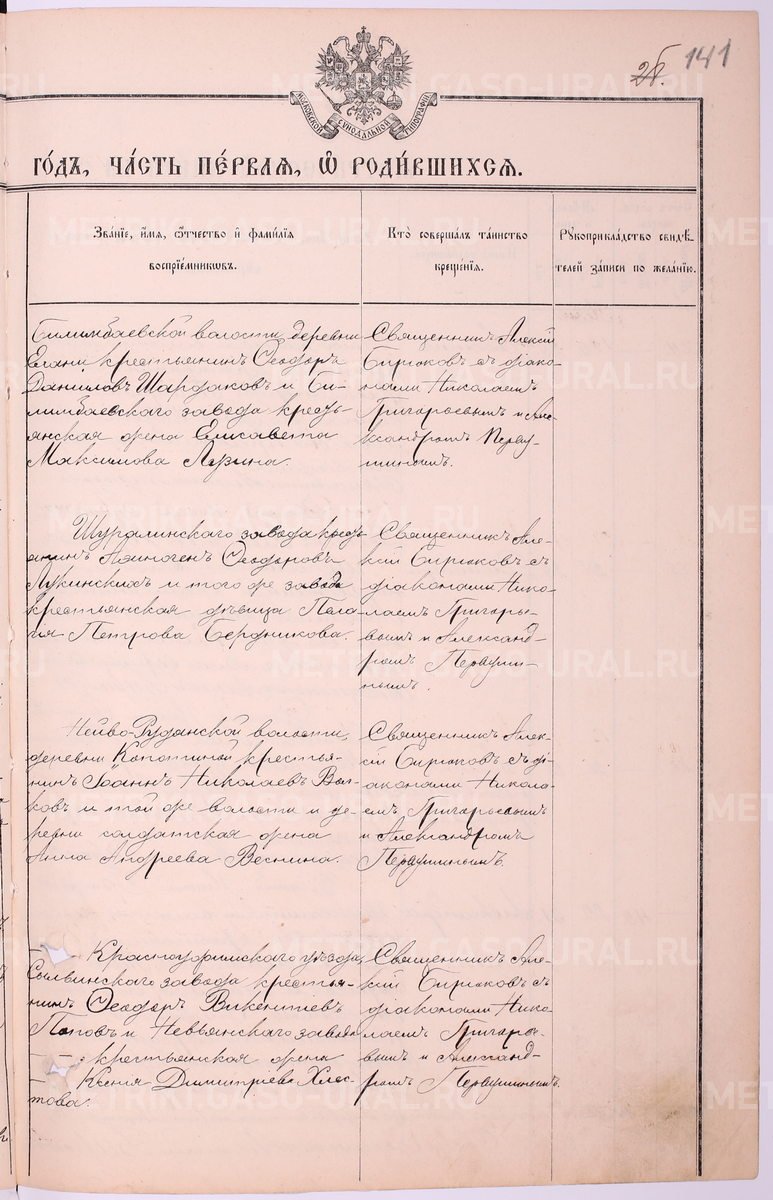 2б. 141
МОСКОВСКОЙ СѴНОДАЛЬНОЙ ТИПОГРАФІИ
ГО́ДЪ, ЧА́СТЬ ПЕ́РВАЯ, Ѽ РОДИ́ВШИХСЯ.
Зва́нїе, и́мя, ѻ҆́тчество и҆ фами́лїя
воспрїе́мникѡвъ.
Кто̀ соверша́лъ та́инство
креще́нїя.
Рꙋкоприкла́дство свидѣ́-
телей за́писи по жела́нїю.
Билимбаевской волости деревни
Крестьянинъ Ѳеодоръ
Даниловъ Шардаковъ и Би-
лимбаевскаго завода кресть-
янская жена Елисавета
Максимова Лузина.
Священникъ Алексій
Бирюковъ съ діако-
нами Николаемъ
Григорьевымъ и Але-
ксандромъ Перву-
шинымъ.
Шуралинскаго завода кресть-
янинъ Аѳиногенъ Ѳеодоровъ
Лукинскихъ и того же завода
крестьянская дѣвица Пела-
гія Петрова Бердникова.
Священникъ Але-
ксій Бирюковъ съ
діаконами Нико-
лаемъ Григорье-
вымъ и Александ-
ромъ Первуши-
нымъ.
Нейво-Рудянской волости,
деревни Копотиной крестья-
нинъ Іоаннъ Николаевъ Вол-
ковъ и той же волости и де-
ревни солдатская жена
Анна Андреева Веснина.
Священникъ Алек-
сій Бирюковъ съ ді-
аконами Никола-
емъ Григорьевымъ
и Александромъ
Первушинымъ.
Красноуфимскаго уѣзда,
Сылвинскаго завода крестья-
нинъ Ѳеодоръ Викентіевъ
Поповъ и Невьянскаго завода
крестьянская жена
Ксенія Димитріева Хлес-
това.
Священникъ Але-
ксій Бирюковъ съ
діаконами Нико-
лаемъ Григорье-
вымъ и Александ-
ромъ Первушинымъ.
METRIKI.GASO-URAL.RU